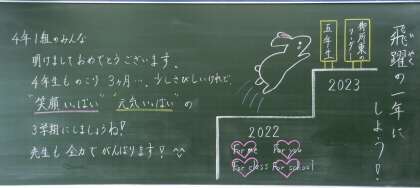 4年1組のみんな
明けましておめでとうございます.
4年生ものこり3ヶ月…. 少しさびしいけれど.
"笑顔いっぱい" "元気いっぱい" の
3学期にしましょうね!
先生も全力でがんばります!
2022
For me For you
For class For school
2023
五年生
御所東のリーダー
飛躍の一年に
ひやく
しよう!